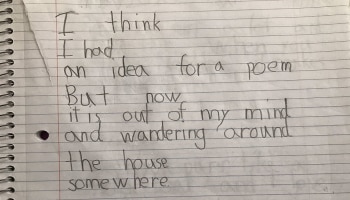 I think
I had
an idea for a poem
But now
it is out of my mind
and wandering around
the house
somewhere